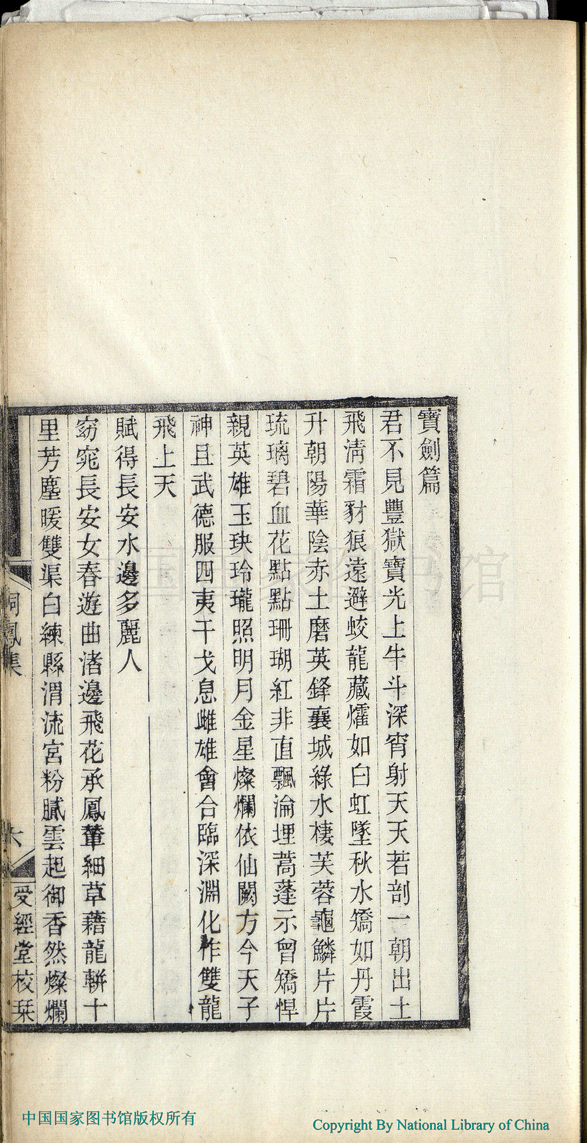 寶劍篇
君不見豐獄寶光上牛斗深宵射天天若剖一朝出土
飛清霜豺狼遠避蛟龍藏爠如白虹墜秋水矯如丹霞
升朝陽華陰赤土磨英鋒襄城綠水棲芙蓉龜鱗片片
琉璃碧血花點點珊瑚紅非直飄淪埋蒿蓬示曾矯悍
親英雄玉玦玲瓏照明月金星燦爛依仙闕方今天子
神且武德服四夷干戈息雌雄會合臨深淵化作雙龍
飛上天
賦得長安水邊多麗人
窈窕長安女春遊曲渚邊飛花承鳳輦細草藉龍軿十
里芳塵暖雙渠白練縣渭流宮粉膩雲起御香然燦爛
桐鳳集
六
受經堂校栞
中国国家图书馆
中国国家图书馆版权所有
Copyright By National Library of China